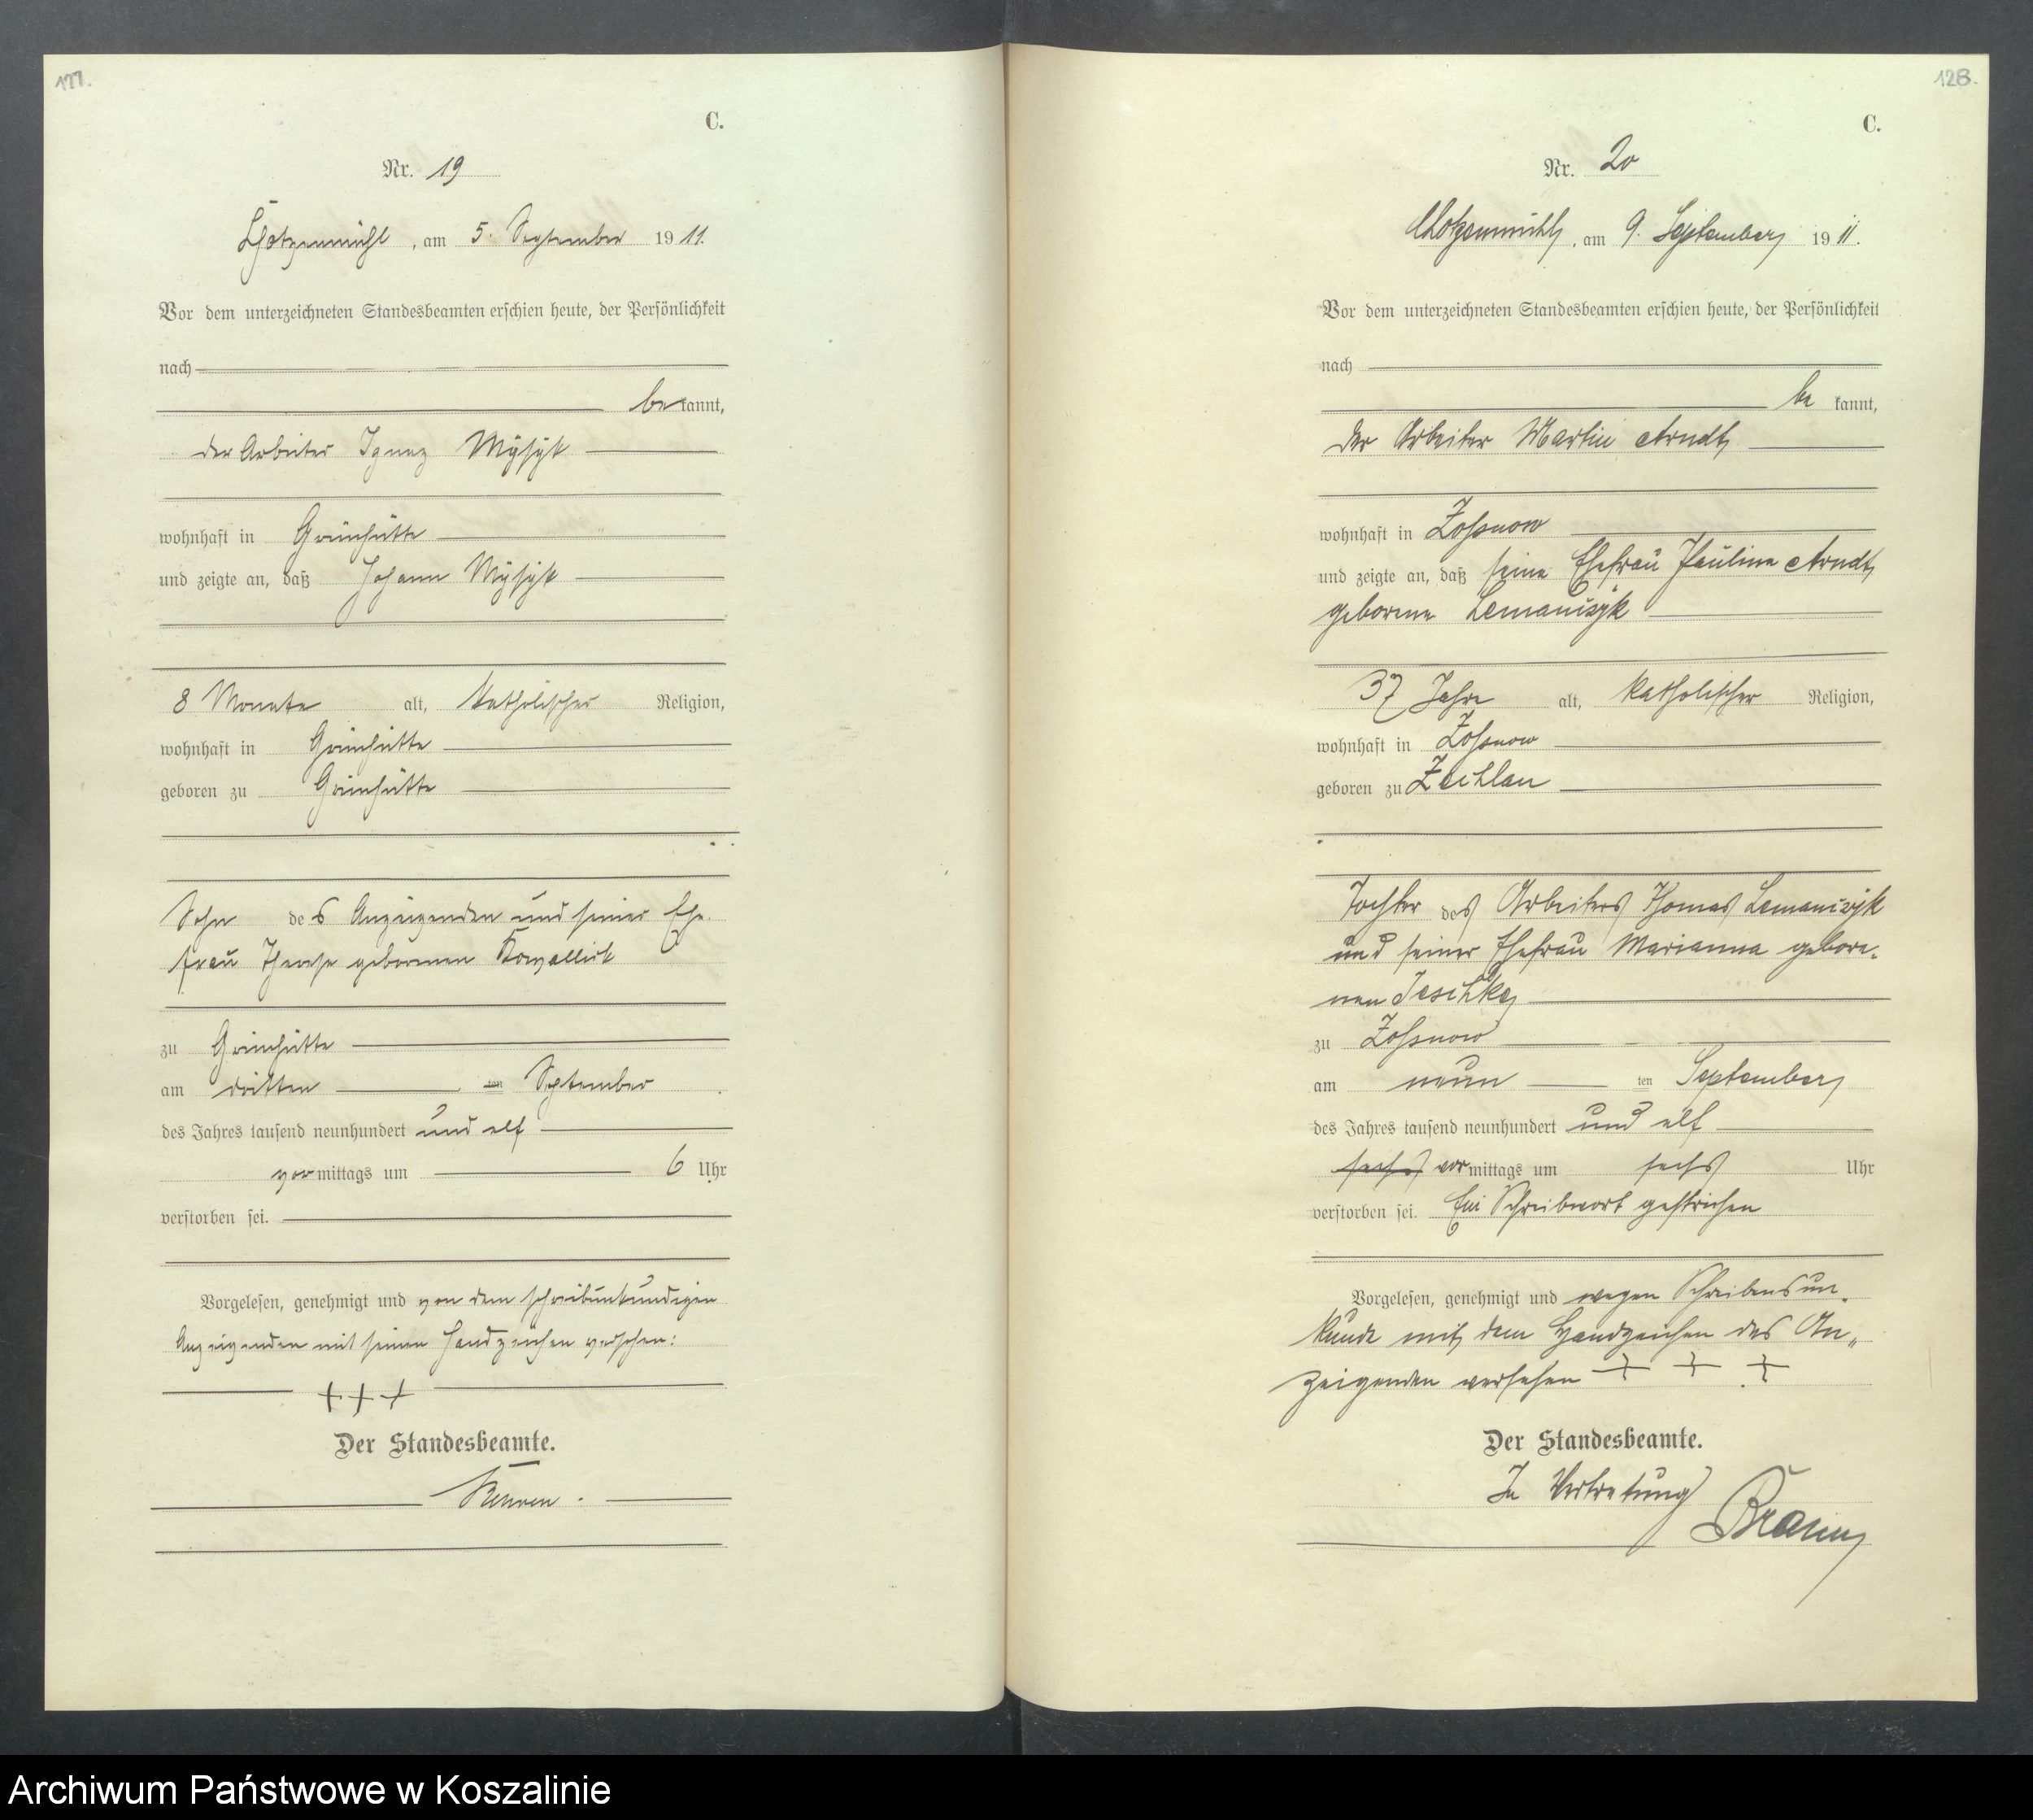 127.
C.
Nr. 19
Chotzenmühl, am 5. September 1911.
Vor dem unterzeichneten Standesbeamten erschien heute, der Persönlichkeit
nach
be kannt,
der Arbeiter Ignaz
wohnhaft in Grünhütte
und zeigte an, daß Johann
8 Monate alt, katholischer Religion,
wohnhaft in Grünhütte
geboren zu Grünhütte
Sohn des Anzeigenden und seiner Ehe-
frau Therese geborenen Kowallik
zu Grünhütte
am dritten ten September
des Jahres tausend neunhundert und elf
vor mittags um 6 Uhr
verstorben sei.
Vorgelesen, genehmigt und von dem schreibunkundigen
Anzeigenden mit seinen Handzeichen versehen:
+++
Der Standesbeamte.
128.
C.
Nr. 20
Chotzenmühl, am 9. September 1911.
Vor dem unterzeichneten Standesbeamten erschien heute, der Persönlichkeit
nach
be kannt,
der Arbeiter Martin Arndt
wohnhaft in Zossnow
und zeigte an, daß seine Ehefrau Pauline Arndt
geborene Lemanczyk
37 Jahre alt, katholischer Religion,
wohnhaft in Zossnow
geboren zu Zechlau
Tochter des Arbeiters Thomas Lemanczyk
und seiner Ehefrau Marianna gebore-
nen Jeschke
zu Zossnow
am neun ten September
des Jahres tausend neunhundert und elf
sechs vor mittags um sechs Uhr
verstorben sei. Ein Schreibwort gestrichen
Vorgelesen, genehmigt und wegen Schreibensun-
kunde mit dem Handzeichen des An-
zeigenden versehen + + +
Der Standesbeamte.
In Vertretung
Braun
Archiwum Państwowe w Koszalinie